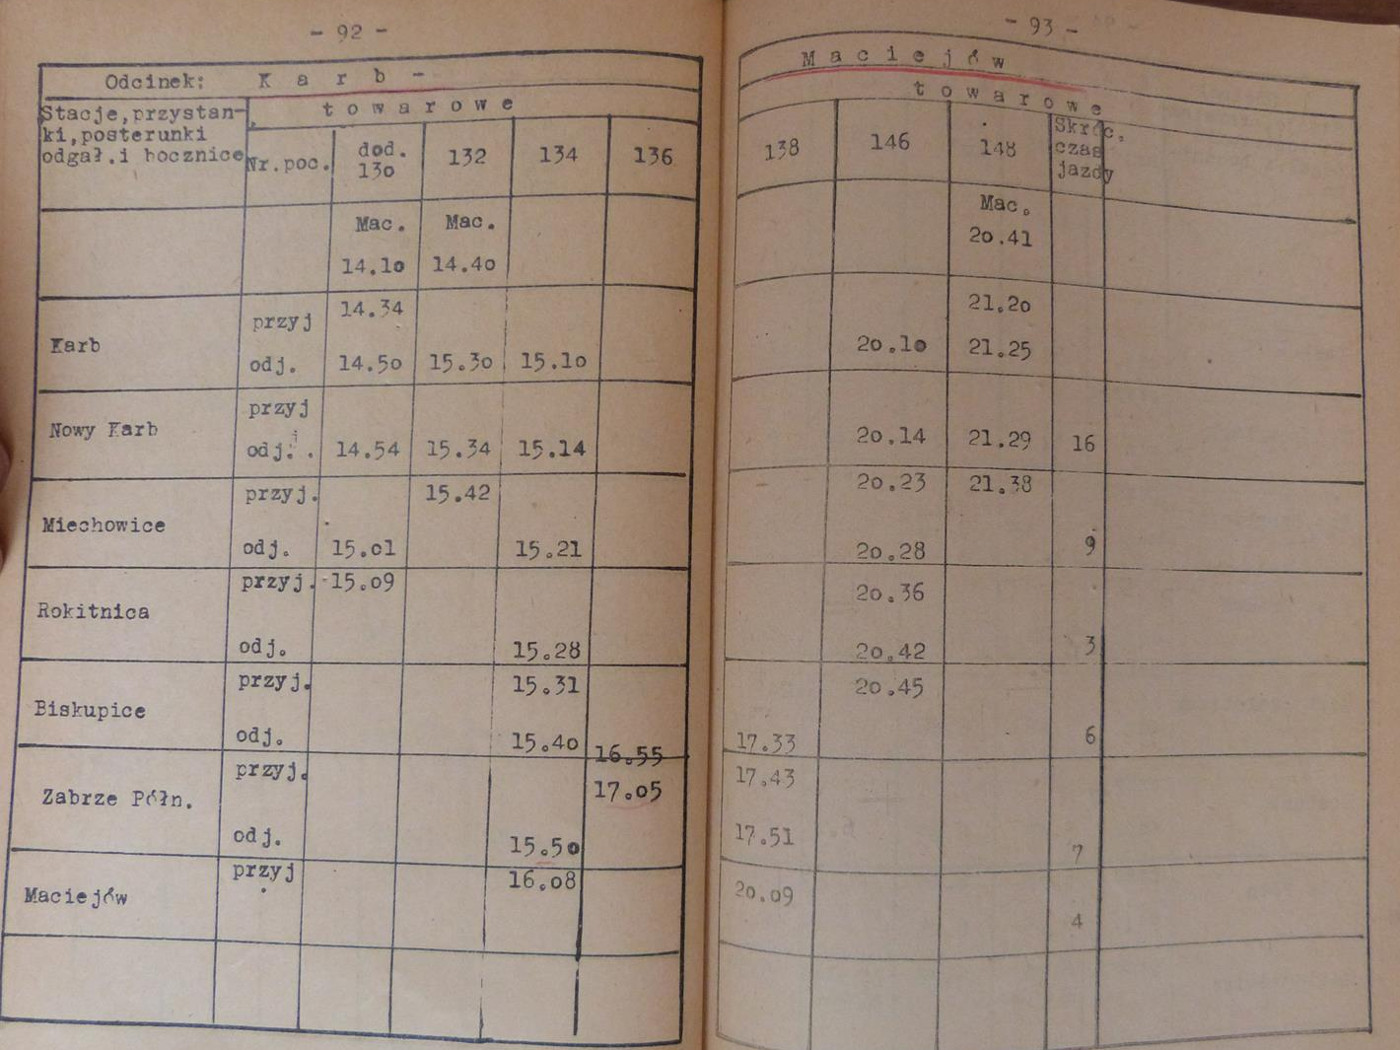 - 92 -
Odcinek: K a r b -
Stacje,przystan-
ki,posterunki
odgał.i bocznice
t o w a r o w e
Nr.poc. dod. 130 132 134 136
Mac. Mac.
14.10 14.40
Karb
przyj 14.34
odj. 14.50 15.30 15.10
Nowy Karb
przyj
odj. 14.54 15.34 15.14
Miechowice
przyj. 15.42
odj. 15.01 15.21
Rokitnica
przyj. 15.09
odj. 15.28
Biskupice
przyj. 15.31
odj. 15.40 16.55
Zabrze Półn.
przyj. 17.05
odj. 15.50
Maciejów
przyj 16.08
- 93 -
M a c i e j ó w
t o w a r o w e
138 146 148 Skróc.
czas
jazdy
Mac.
20.41
21.20
20.10 21.25
20.14 21.29 16
20.23 21.38
20.28 9
20.36
20.42 3
20.45
17.33 6
17.43
17.51 7
20.09
4